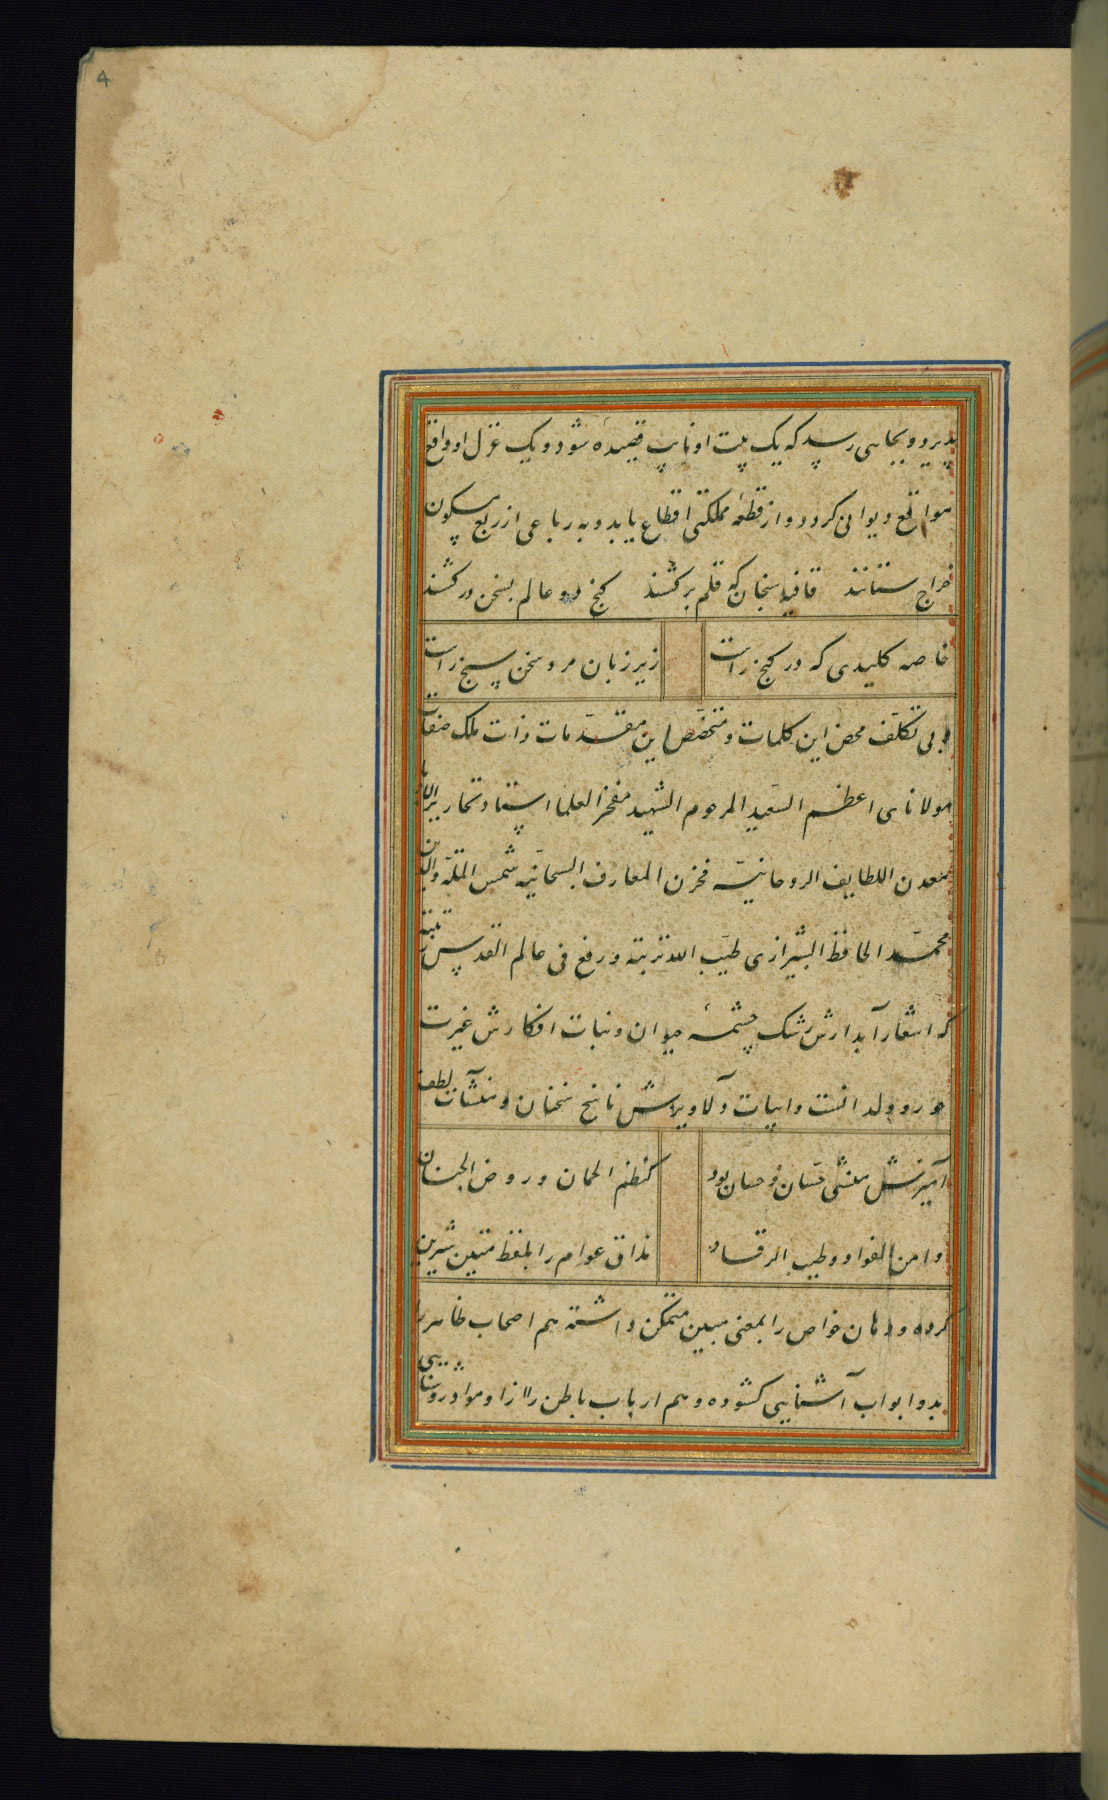 4
پذیرد و بجایی رسد که یک بیت او نایب قصیده شود و یک غزل او واقع
مواقع دیوانی گردد و از قطعهٔ مملکتی اقطاع یابد و به رباعی از ربع مسکون
خراج ستانند قافیه سنجان که قلم برکشند گنج دو عالم بسخن درکشند
خاصه کلیدی که در گنج راست زیر زبان مرد سخن سنج راست
و بی تکلف محض این کلمات و متخصص این مقدمات ذات ملک صفات
مولانای اعظم السعید المرحوم الشهید مفخر العلما استاد نحاریر الادبا
معدن اللطایف الروحانیة مخزن المعارف السبحانیه شمس الملة والدین
محمد الحافظ الشیرازی طیب الله تربته و رفع فی عالم القدس رتبته
که اشعار آبدارش رشک چشمهٔ حیوان و نبات افکارش غیرت
حور و ولدانست و ابیات دلاویزش ناسخ سخنان و منشآت لطف
آمیزش منشی حسان بود کنظم الجمان و روض الجنان
و امن الفواد و طیب الرقاد مذاق عوام را بلفظ متین شیرین
کرده و دهان خواص را بمعنی مبین متمکن داشته هم اصحاب ظاهر را
بدو ابواب آشنایی کشوده و هم ارباب باطن را ازو مواد روشنایی